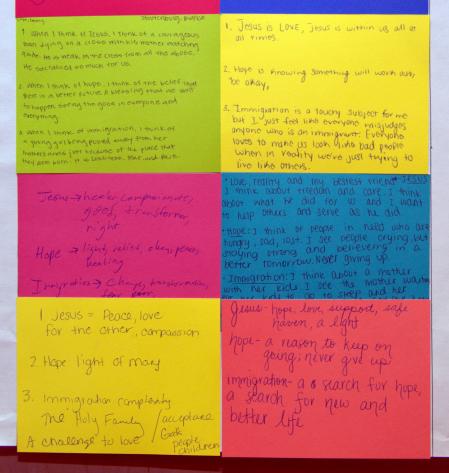 1. When I think of Jesus, I think of a courageous
man dying on a cross with his mother watching
He is weak on the cross from all the abuse.
He sacrificed so much for us.
2. When I think of hope, I think of the belief that
there is a better future. A blessing that we
to happen seeing the good in everyone and
everything
3. When I think of immigration, I think of
a young girl being pulled away from her
mothers arms just because of the place that
they were born. It is
1. Jesus is Love, Jesus is within us all at
all times.
2. Hope is knowing something will work out,
be okay,
3. Immigration is a touchy subject for me
but I just feel like everyone misjudges
anyone who is an immigrant. Everyone
loves to make us look like bad people
when in reality we're just trying to
live like others.
Jesus → healer, compassionate,
good, transformer,
right
Hope → light, relief, okay, peace,
healing
Immigration → change, transformation,
fear
• Love, reality and my bestest friend - Jesus:
I think about friendship and care, I think
about what he did for us and I want
to help others and serve as he did.
• Hope: I think of people in need who are
hungry, sad, lost. I see people crying, but
staying strong and believing in a
better tomorrow. Never giving up.
• Immigration: I think about a mother
with her kids I see the mother waiting
for her kids to go to sleep, and her
1 Jesus = Peace, love
for the other, compassion
2. Hope light of mary
3. Immigration complexity
The Holy Family / acceptance
A challenge to love / God
people
children
Jesus- hope, love, support, safe
haven, a light
hope- a reason to keep on
going; never give up;
immigration- a search for hope,
a search for new and
better life